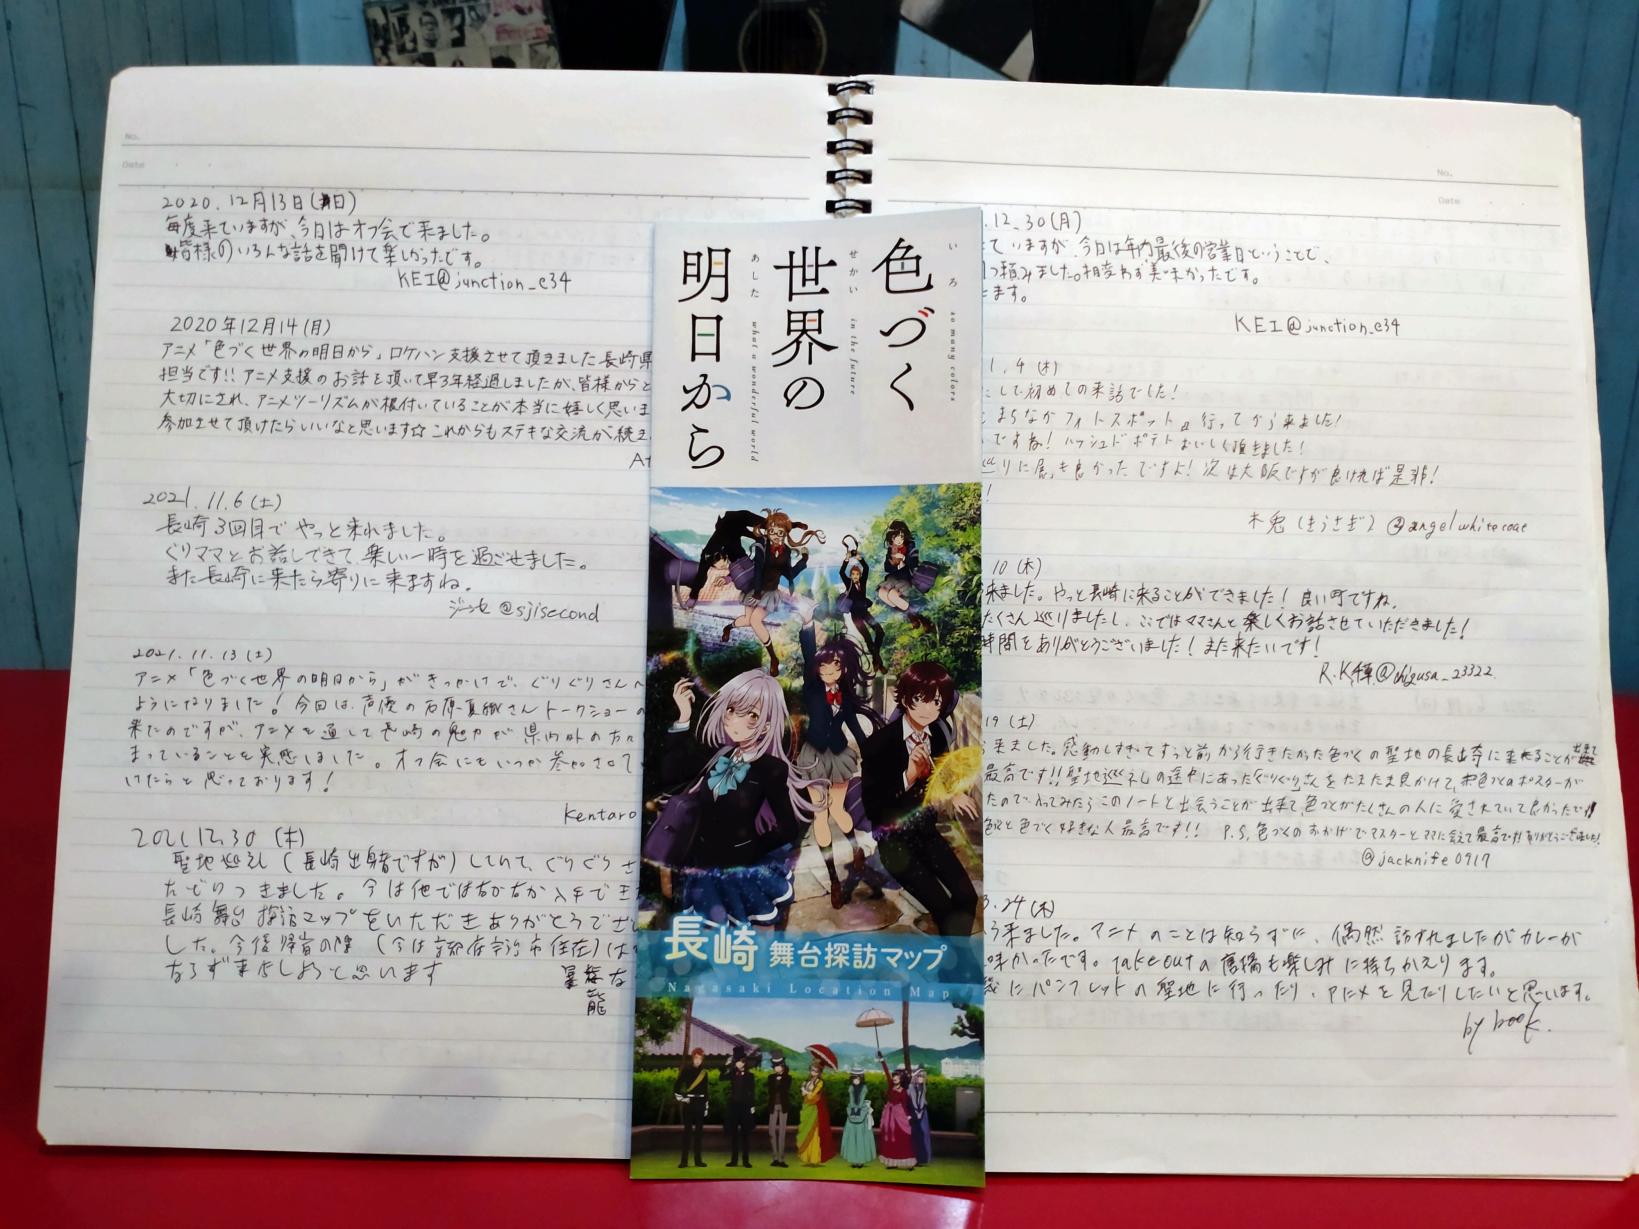 No.
Date
2020.12月13日(日)
毎度来ていますが、今日はオフ会で来ました。
皆様のいろんな話を聞けて楽しかったです。
KEI@junction_e34
2020年12月14(月)
アニメ「色づく世界の明日から」ロケハン支援させて頂きました長崎県
担当です!! アニメ支援のお話を頂いて早3年経過しましたが、皆様からと
大切にされ、アニメツーリズムが根付いていることが本当に嬉しく思いま
参加させて頂けたらいいなと思います☆これからもステキな交流が続き
2021.11.6(土)
長崎3回目でやっと来れました。
ぐりママとお話しできて、楽しい一時を過ごせました。
また長崎に来たら寄りに来ますね。
@sjisecond
2021.11.13(土)
アニメ「色づく世界の明日から」がきっかけで、ぐりぐりさんへ
ようになりました! 今回は、声優の石原夏織さんトークショーの
来たのですが、アニメを通して長崎の魅力が県内外の方々
まっていることを実感しました。オフ会にもいつか参加させて
けたらと思っております!
Kentaro
2021.12.30(木)
聖地巡礼(長崎出身者ですが)していて、ぐりぐりさ
たどりつきました。今は他ではなかなか入手できま
長崎舞台探訪マップをいただきありがとうござ
した。今後帰省の際(今は京都府京都市在住)は
ならず来店しようと思います
色づく
世界の
明日から
いろ
せかい
あした
so many colors
in the future
what a wonderful world
長崎 舞台探訪マップ
Nagasaki Location Map
No.
Date
.12.30(月)
ていますが、今日は年内最後の営業日ということで、
つ頼みました。相変わらず美味かったです。
ます。
KEI@junction_e34
1.4(木)
して初めての来訪でした!
まちなかフォトスポットに行ってから来ました!
ですね! ハッシュドポテトおいしく頂きました!
りに居ても良かったですよ! 次は大阪ですが良ければ是非!
!
木兎(きうさぎ) @angelwhitecoat
10(木)
来ました。やっと長崎に来ることができました! 良い町ですね。
たくさん巡りましたし、ここではママさんと楽しくお話させていただきました!
時間をありがとうございました! また来たいです!
@chigusa_23322
19(土)
来ました。感動しすぎてずっと前から行きたかった色づくの聖地の長崎に来ることが出来て
最高です!! 聖地巡礼の途中にあったぐりぐりさんをたまたま見かけて、色づくのポスターが
たので入ってみたらこのノートと出会うことが出来て、色づくがたくさんの人に愛されていて良かったです!
色づく好きな人最高です!! P.S.色づくのおかげでマスターとママに会えて最高です!! ありがとうございました!
@jacknife0917
3.24(木)
う来ました。アニメのことは知らずに、偶然訪ずれましたがカレーが
味かったです。takeoutの唐揚も楽しみに持ちかえります。
にパンフレットの聖地に行ったり、アニメを見たりしたいと思います。
by book.